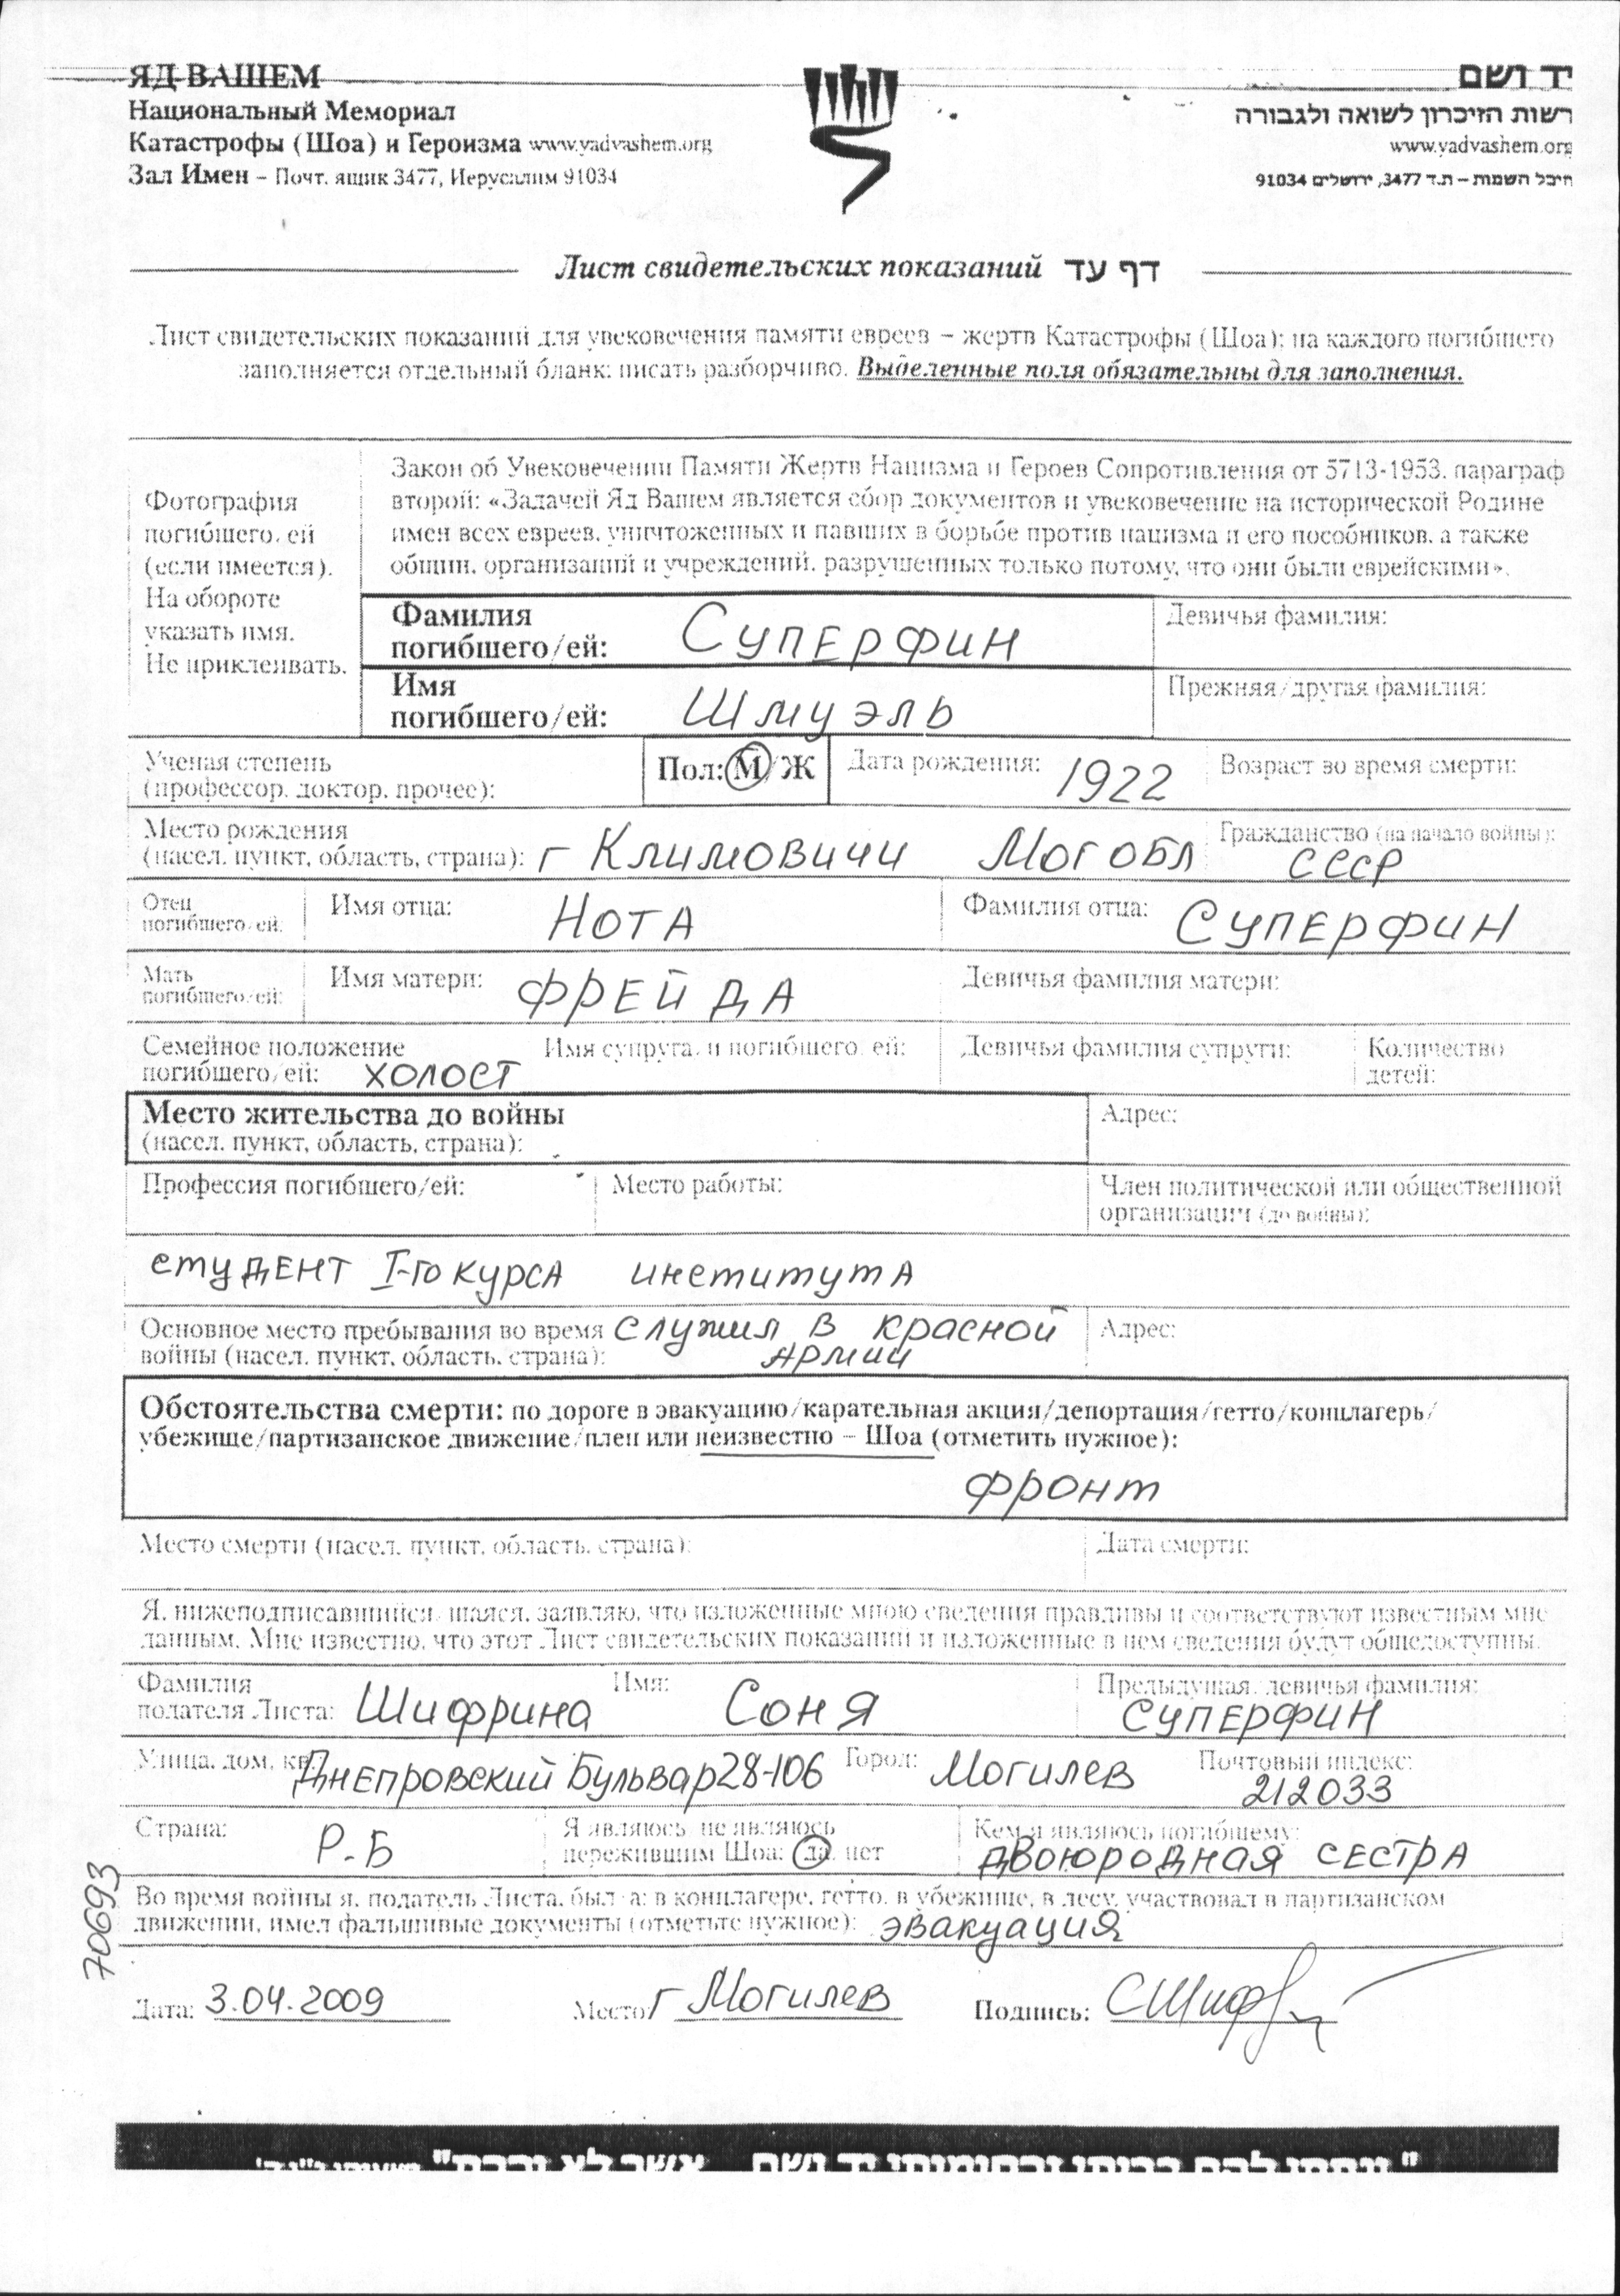 ЯД ВАШЕМ
Национальный Мемориал
Катастрофы (Шоа) и Героизма www.yadvashem.org
Зал Имен – Почт. ящик 3477, Иерусалим 91034
יד ושם
רשות הזיכרון לשואה ולגבורה
www.yadvashem.org
היכל השמות – ת.ד 3477, ירושלים 91034
Лист свидетельских показаний דף עד
Лист свидетельских показаний для увековечения памяти евреев – жертв Катастрофы (Шоа): на каждого погибшего
заполняется отдельный бланк: писать разборчиво. Выделенные поля обязательны для заполнения.
Фотография
погибшего/ей
(если имеется).
На обороте
указать имя.
Не приклеивать.
Закон об Увековечении Памяти Жертв Нацизма и Героев Сопротивления от 5713-1953, параграф
второй: «Задачей Яд Вашем является сбор документов и увековечение на исторической Родине
имен всех евреев, уничтоженных и павших в борьбе против нацизма и его пособников, а также
общин, организаций и учреждений, разрушенных только потому, что они были еврейскими».
Фамилия
погибшего/ей: Суперфин
Девичья фамилия:
Имя
погибшего/ей: Шмуэль
Прежняя/другая фамилия:
Ученая степень
(профессор, доктор, прочее):
Пол: М/Ж
Дата рождения: 1922
Возраст во время смерти:
Место рождения
(насел. пункт, область, страна): г Климовичи Мог обл
Гражданство (на начало войны):
СССР
Отец
погибшего/ей:
Имя отца: Нота
Фамилия отца: Суперфин
Мать
погибшего/ей:
Имя матери: Фрейда
Девичья фамилия матери:
Семейное положение
погибшего/ей: холост
Имя супруга/и погибшего/ей:
Девичья фамилия супруги:
Количество
детей:
Место жительства до войны
(насел. пункт, область, страна):
Адрес:
Профессия погибшего/ей:
Место работы:
Член политической или общественной
организации (до войны):
студент I-го курса института
Основное место пребывания во время служил в красной
войны (насел. пункт, область, страна): Армии
Адрес:
Обстоятельства смерти: по дороге в эвакуацию/карательная акция/депортация/гетто/концлагерь/
убежище/партизанское движение/плен или неизвестно – Шоа (отметить нужное):
фронт
Место смерти (насел. пункт, область, страна):
Дата смерти:
Я, нижеподписавшийся/шаяся, заявляю, что изложенные мною сведения правдивы и соответствуют известным мне
данным. Мне известно, что этот Лист свидетельских показаний и изложенные в нем сведения будут общедоступны.
Фамилия
подателя Листа: Шифрина
Имя: Соня
Предыдущая/девичья фамилия:
Суперфин
Улица, дом, кв.: Днепровский Бульвар 28-106
Город: Могилев
Почтовый индекс:
212033
Страна: Р.Б
Я являюсь/не являюсь
пережившим Шоа: да/нет
Кем я являюсь погибшему:
двоюродная сестра
Во время войны я, податель Листа, был/а: в концлагере, гетто, в убежище, в лесу, участвовал в партизанском
движении, имел фальшивые документы (отметьте нужное): эвакуация
70693
Дата: 3.04.2009
Место: г Могилев
Подпись: